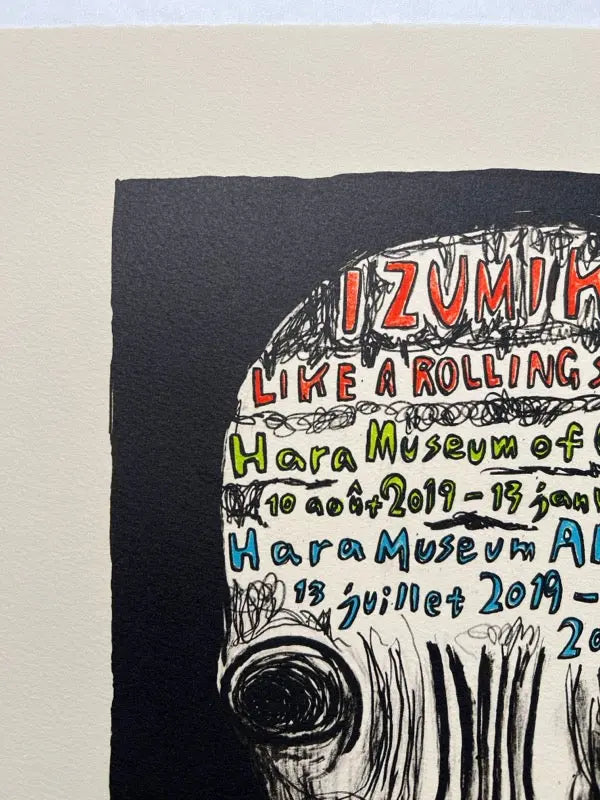 IZUMI K
LIKE A ROLLING S
Hara Museum of C
10 août 2019 - 13 janv
Hara Museum AR
13 juillet 2019 -
20